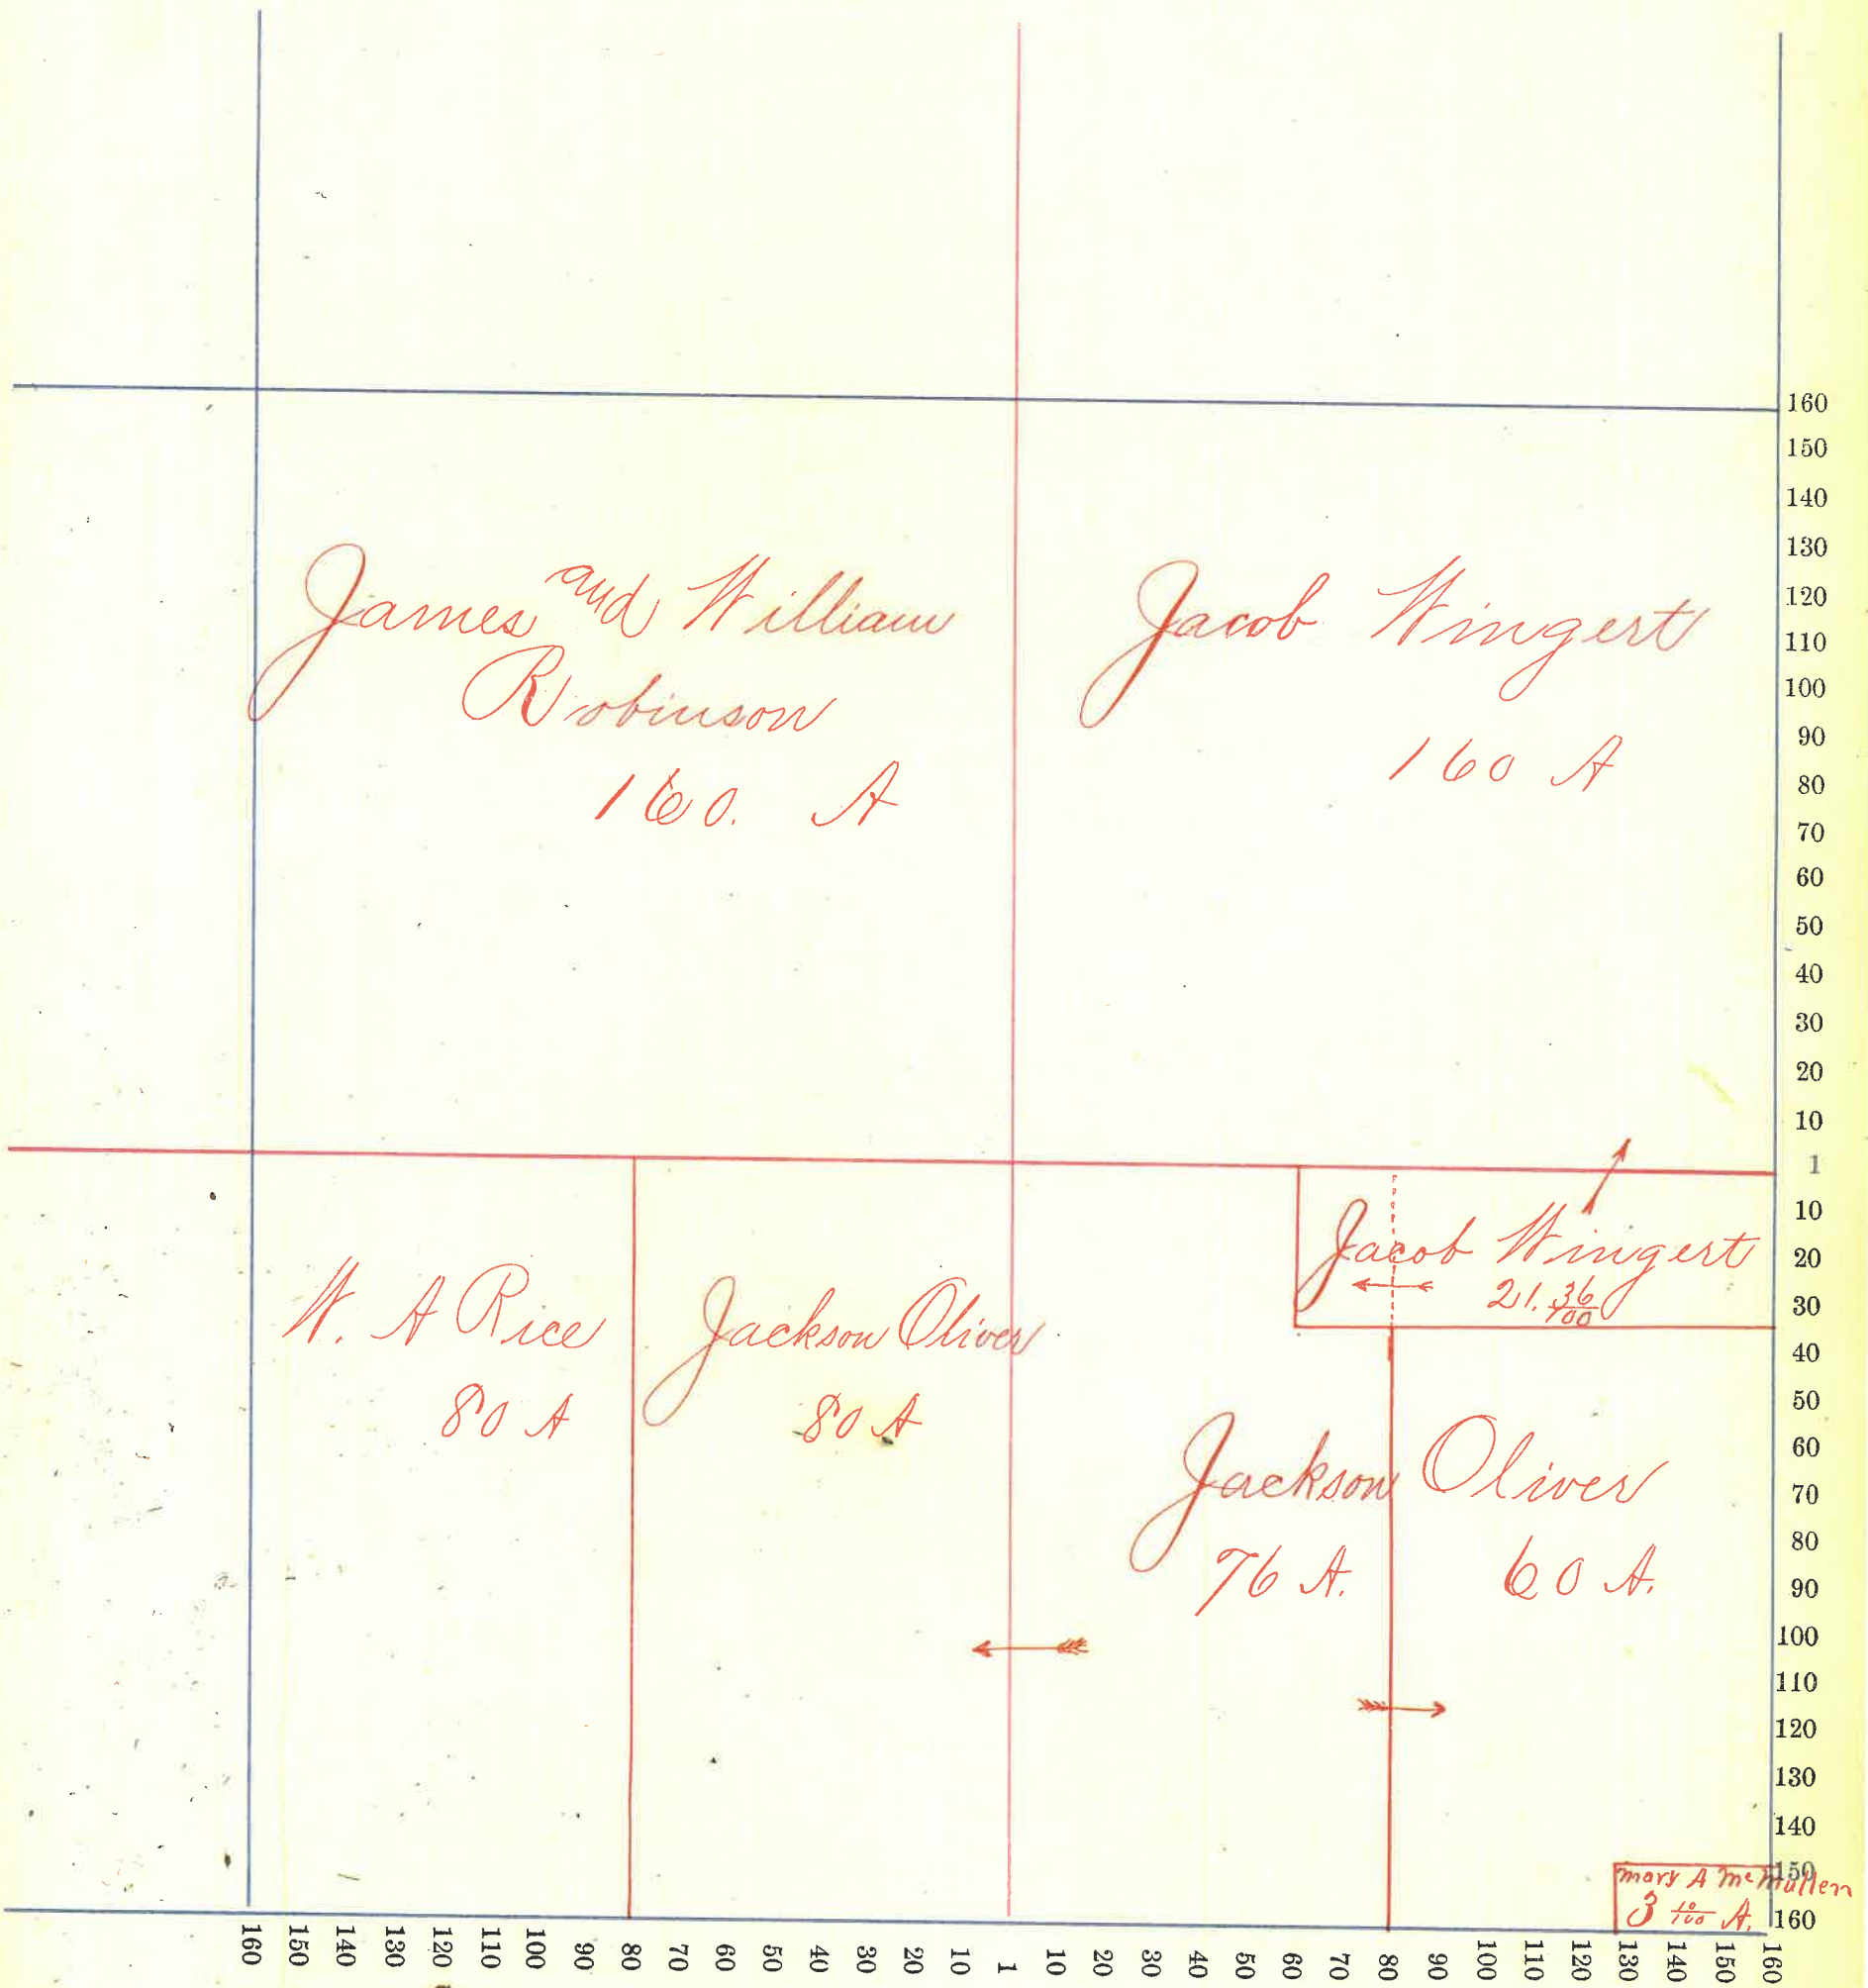 James and William
Robinson
160. A
Jacob Wingert
160 A
W. A Rice
80 A
Jackson Oliver
80 A
Jacob Wingert
21. 36/100
Jackson Oliver
76 A.
60 A.
Mary A McMullen
3 10/100 A.
160
150
140
130
120
110
100
90
80
70
60
50
40
30
20
10
1
10
20
30
40
50
60
70
80
90
100
110
120
130
140
150
160
160 150 140 130 120 110 100 90 80 70 60 50 40 30 20 10 1 10 20 30 40 50 60 70 80 90 100 110 120 130 140 150 160